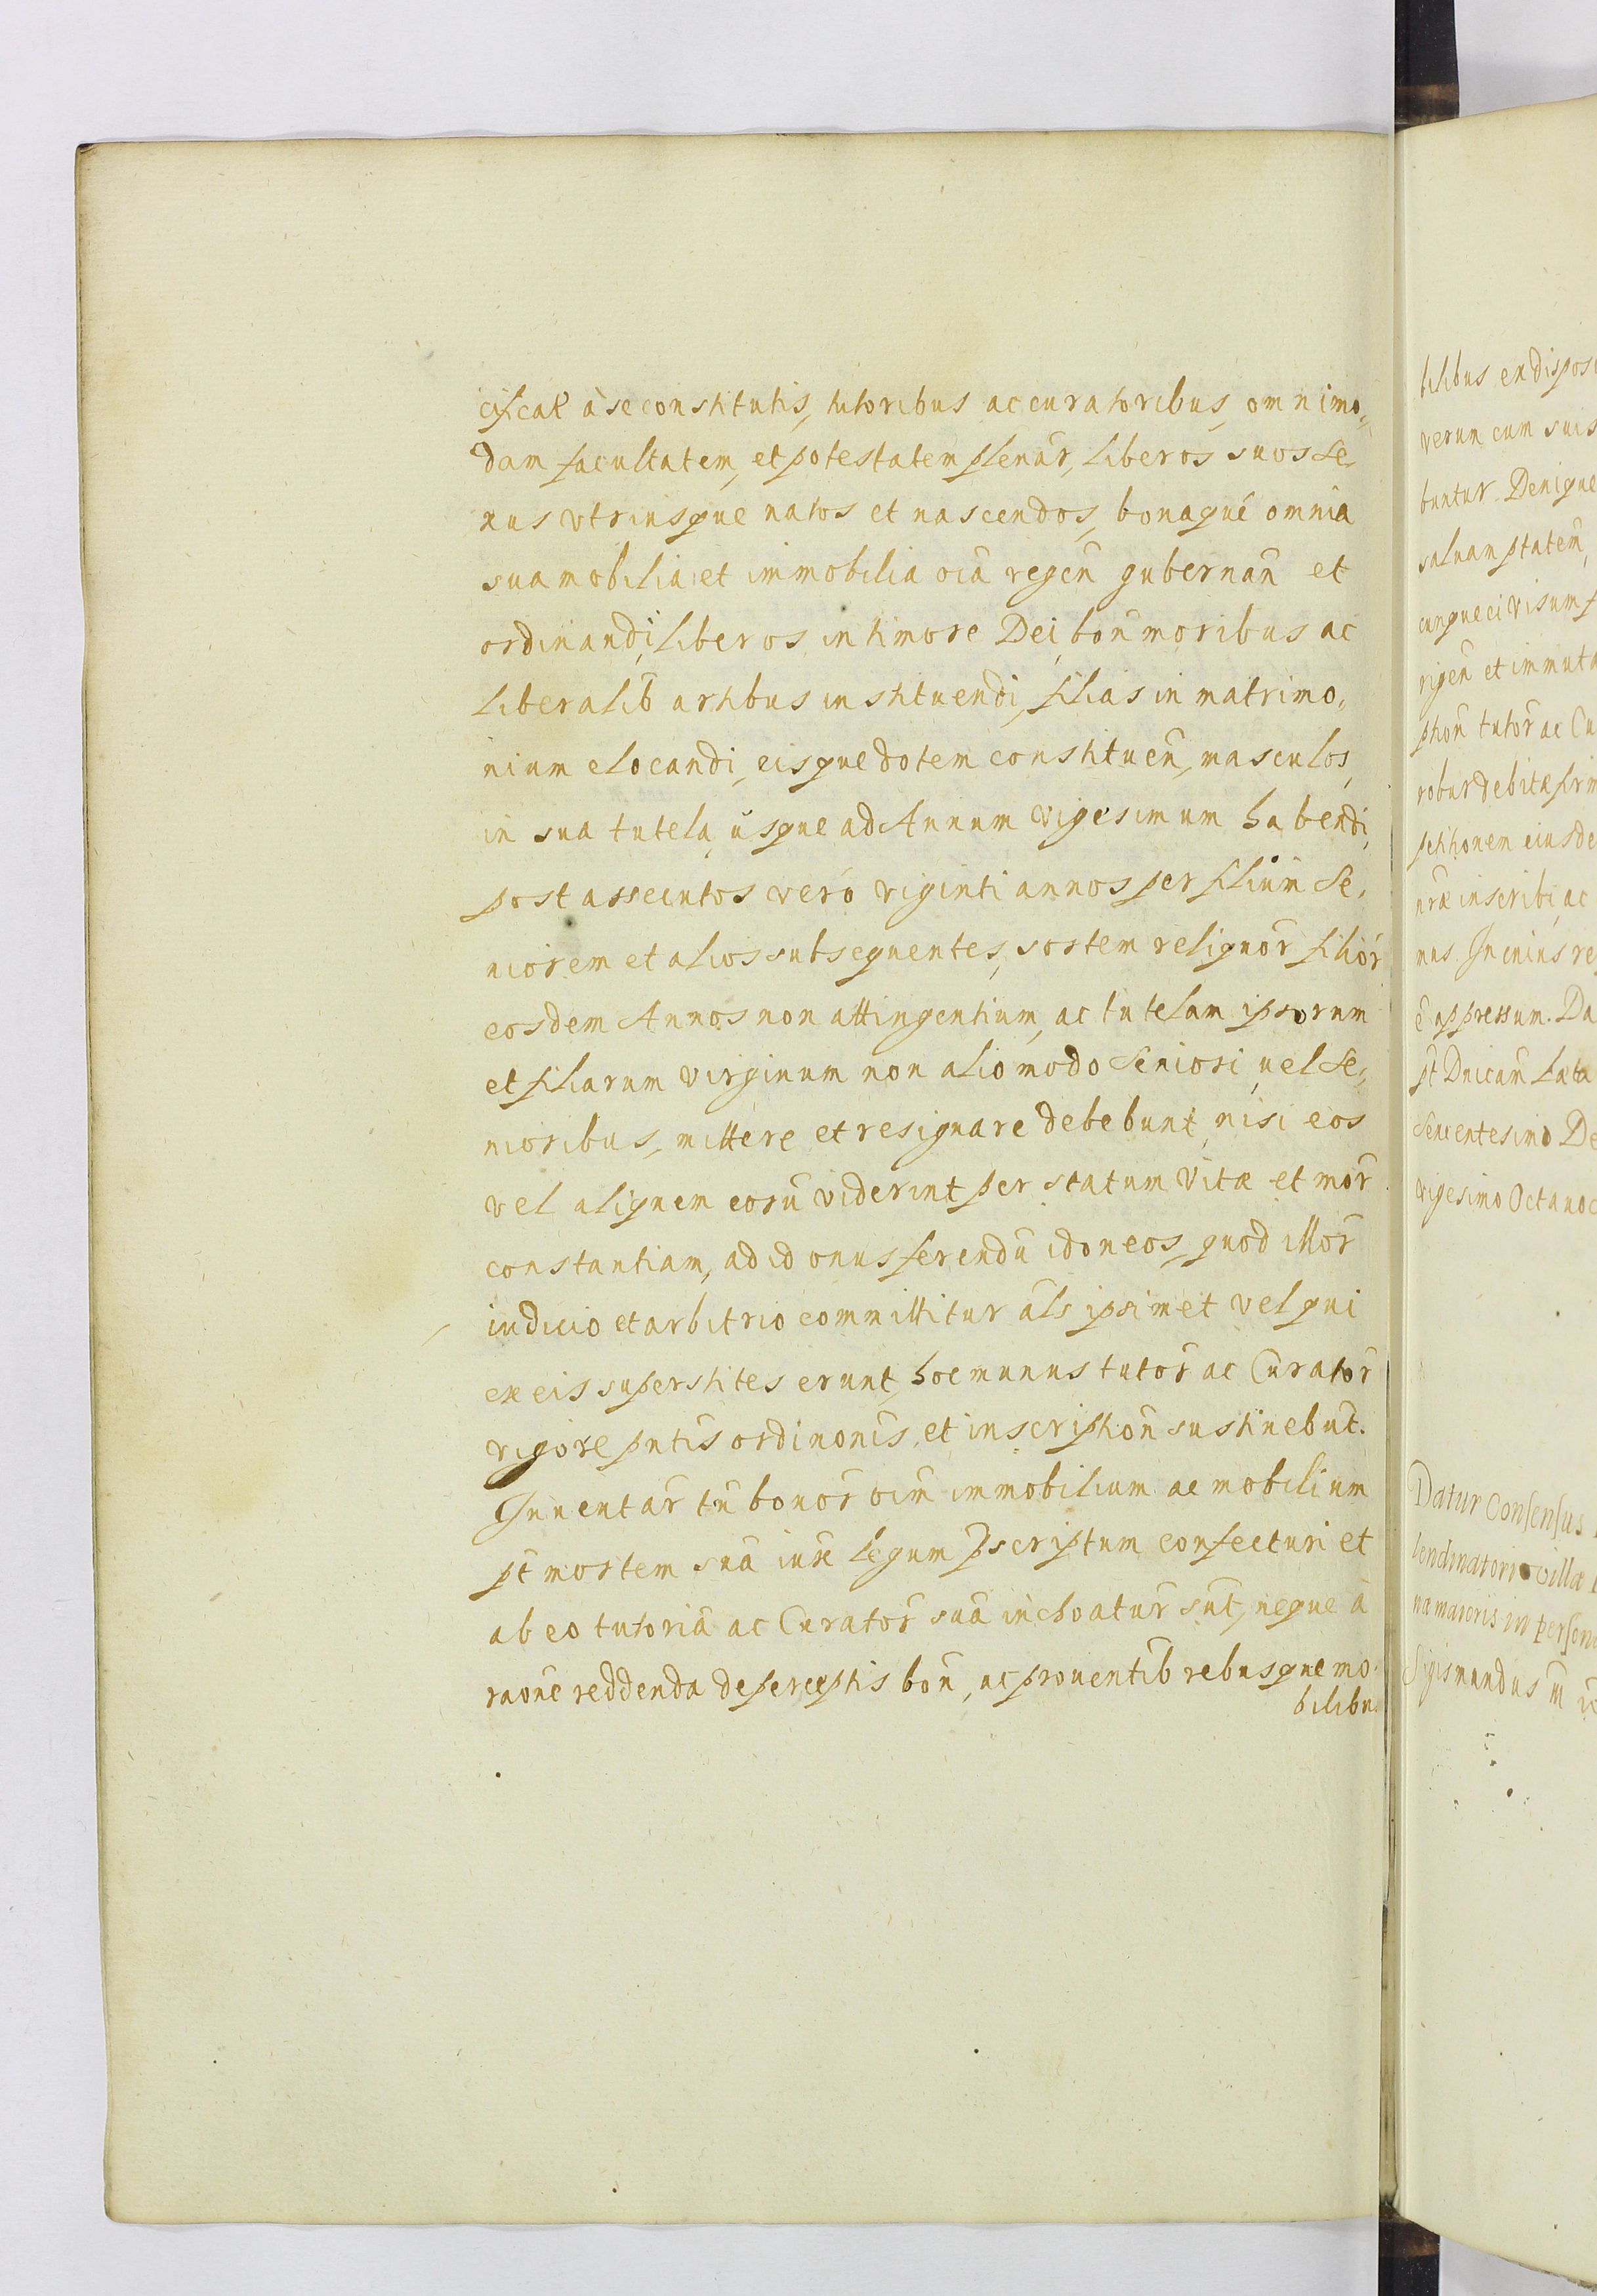 cificat à se constitutis, tutoribus ac curatoribus, omnimo„
dam facultatem, et potestatem plenar̃, liberos suos se„
xus vtriusque natos et nascendos, bonaquè omnia
sua mobilia et immobilia oĩa regeñ gubernañ et
ordinandi, liberos in timore Dei, boñ moribus ac
liberalib̃ artibus instituendi, filias in matrimo„
nium elocandi, eisque dotem constitueñ, masculos,
in sua tutela, usque ad Annum vigesimum habendi,
post assecutos verò viginti annos per filium Se„
niorem et alios subsequentes, sortem reliquor̃ filior̃
eosdem Annos non attingentium, ac tutelam ipsorum
et filiarum virginum non alio modo Seniori, uel Se„
nioribus, mittere et resignare debebunt, nisi eos
vel aliquem eorũ viderint per statum vitæ et mor̃
constantiam, ad id onus ferendũ idoneos, quod illor̃
iudicio et arbitrio committitur als̃ ipsimet vel qui
ex eis superstites erunt, hoc munus tutor̃ ac Curator̃
vigore pñtis ordinõnis, et inscriptioñ sustinebũt.
Inuentar̃ tñ bonor̃ oĩm immobilium ac mobilium
pt̃ mortem suã iure legum p̃scriptum confecturi et
ab eo tutoriã ac Curator̃ suã inchoatur̃ sũt, neque à
raõne reddenda de perceptis boñ, ac prouentib̃ rebusque mo„
bilibus
bilibus ex disposi
verum cum suis
buntur. Denique
saluam ptatem̃,
cunque ei visum f
rigeñ et immuta
ptioñ tutor̃ ac Cu
robur debitæ firm
petitionem eiusde
nr̃æ inscribi, ac
mus. In cuius re
ẽ appressum. Da
pt̃ Dñicam̃ Læta
Sexcentesimo De
vigesimo Octauo c
Datur Consensus
villæ
na maioris in person
Sigismundus m̃